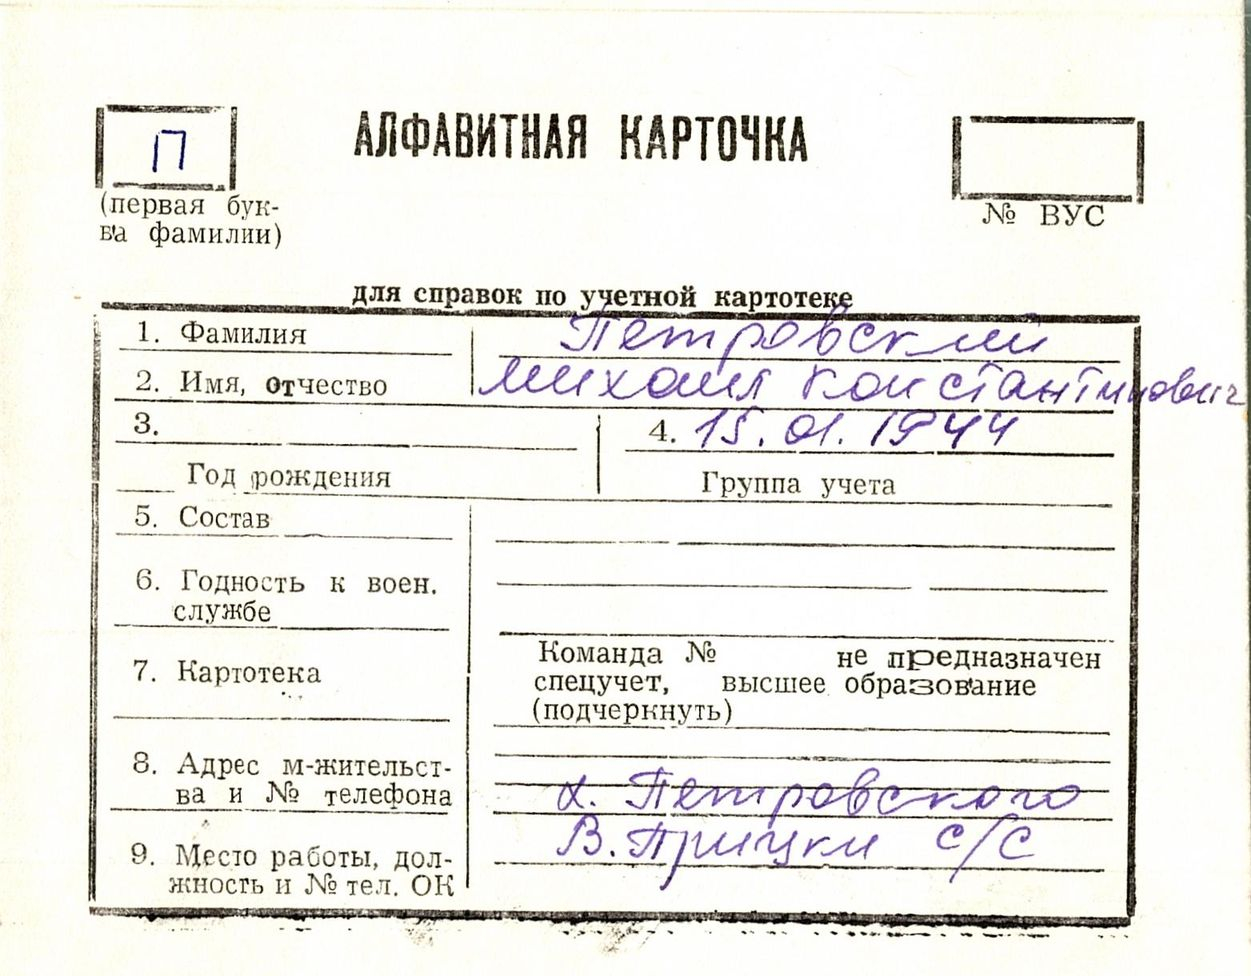 П
АЛФАВИТНАЯ КАРТОЧКА
(первая бук-
ва фамилии)
№ ВУС
для справок по учетной картотеке
1. Фамилия Петровский
2. Имя, отчество Михаил Константинович
3.
4. 15.01.1944
Год рождения
Группа учета
5. Состав
6. Годность к воен.
службе
7. Картотека
Команда № не предназначен
спецучет, высшее образование
(подчеркнуть)
8. Адрес м-жительст-
ва и № телефона
х. Петровского
В.Прицки с/с
9. Место работы, дол-
жность и № тел. ОК